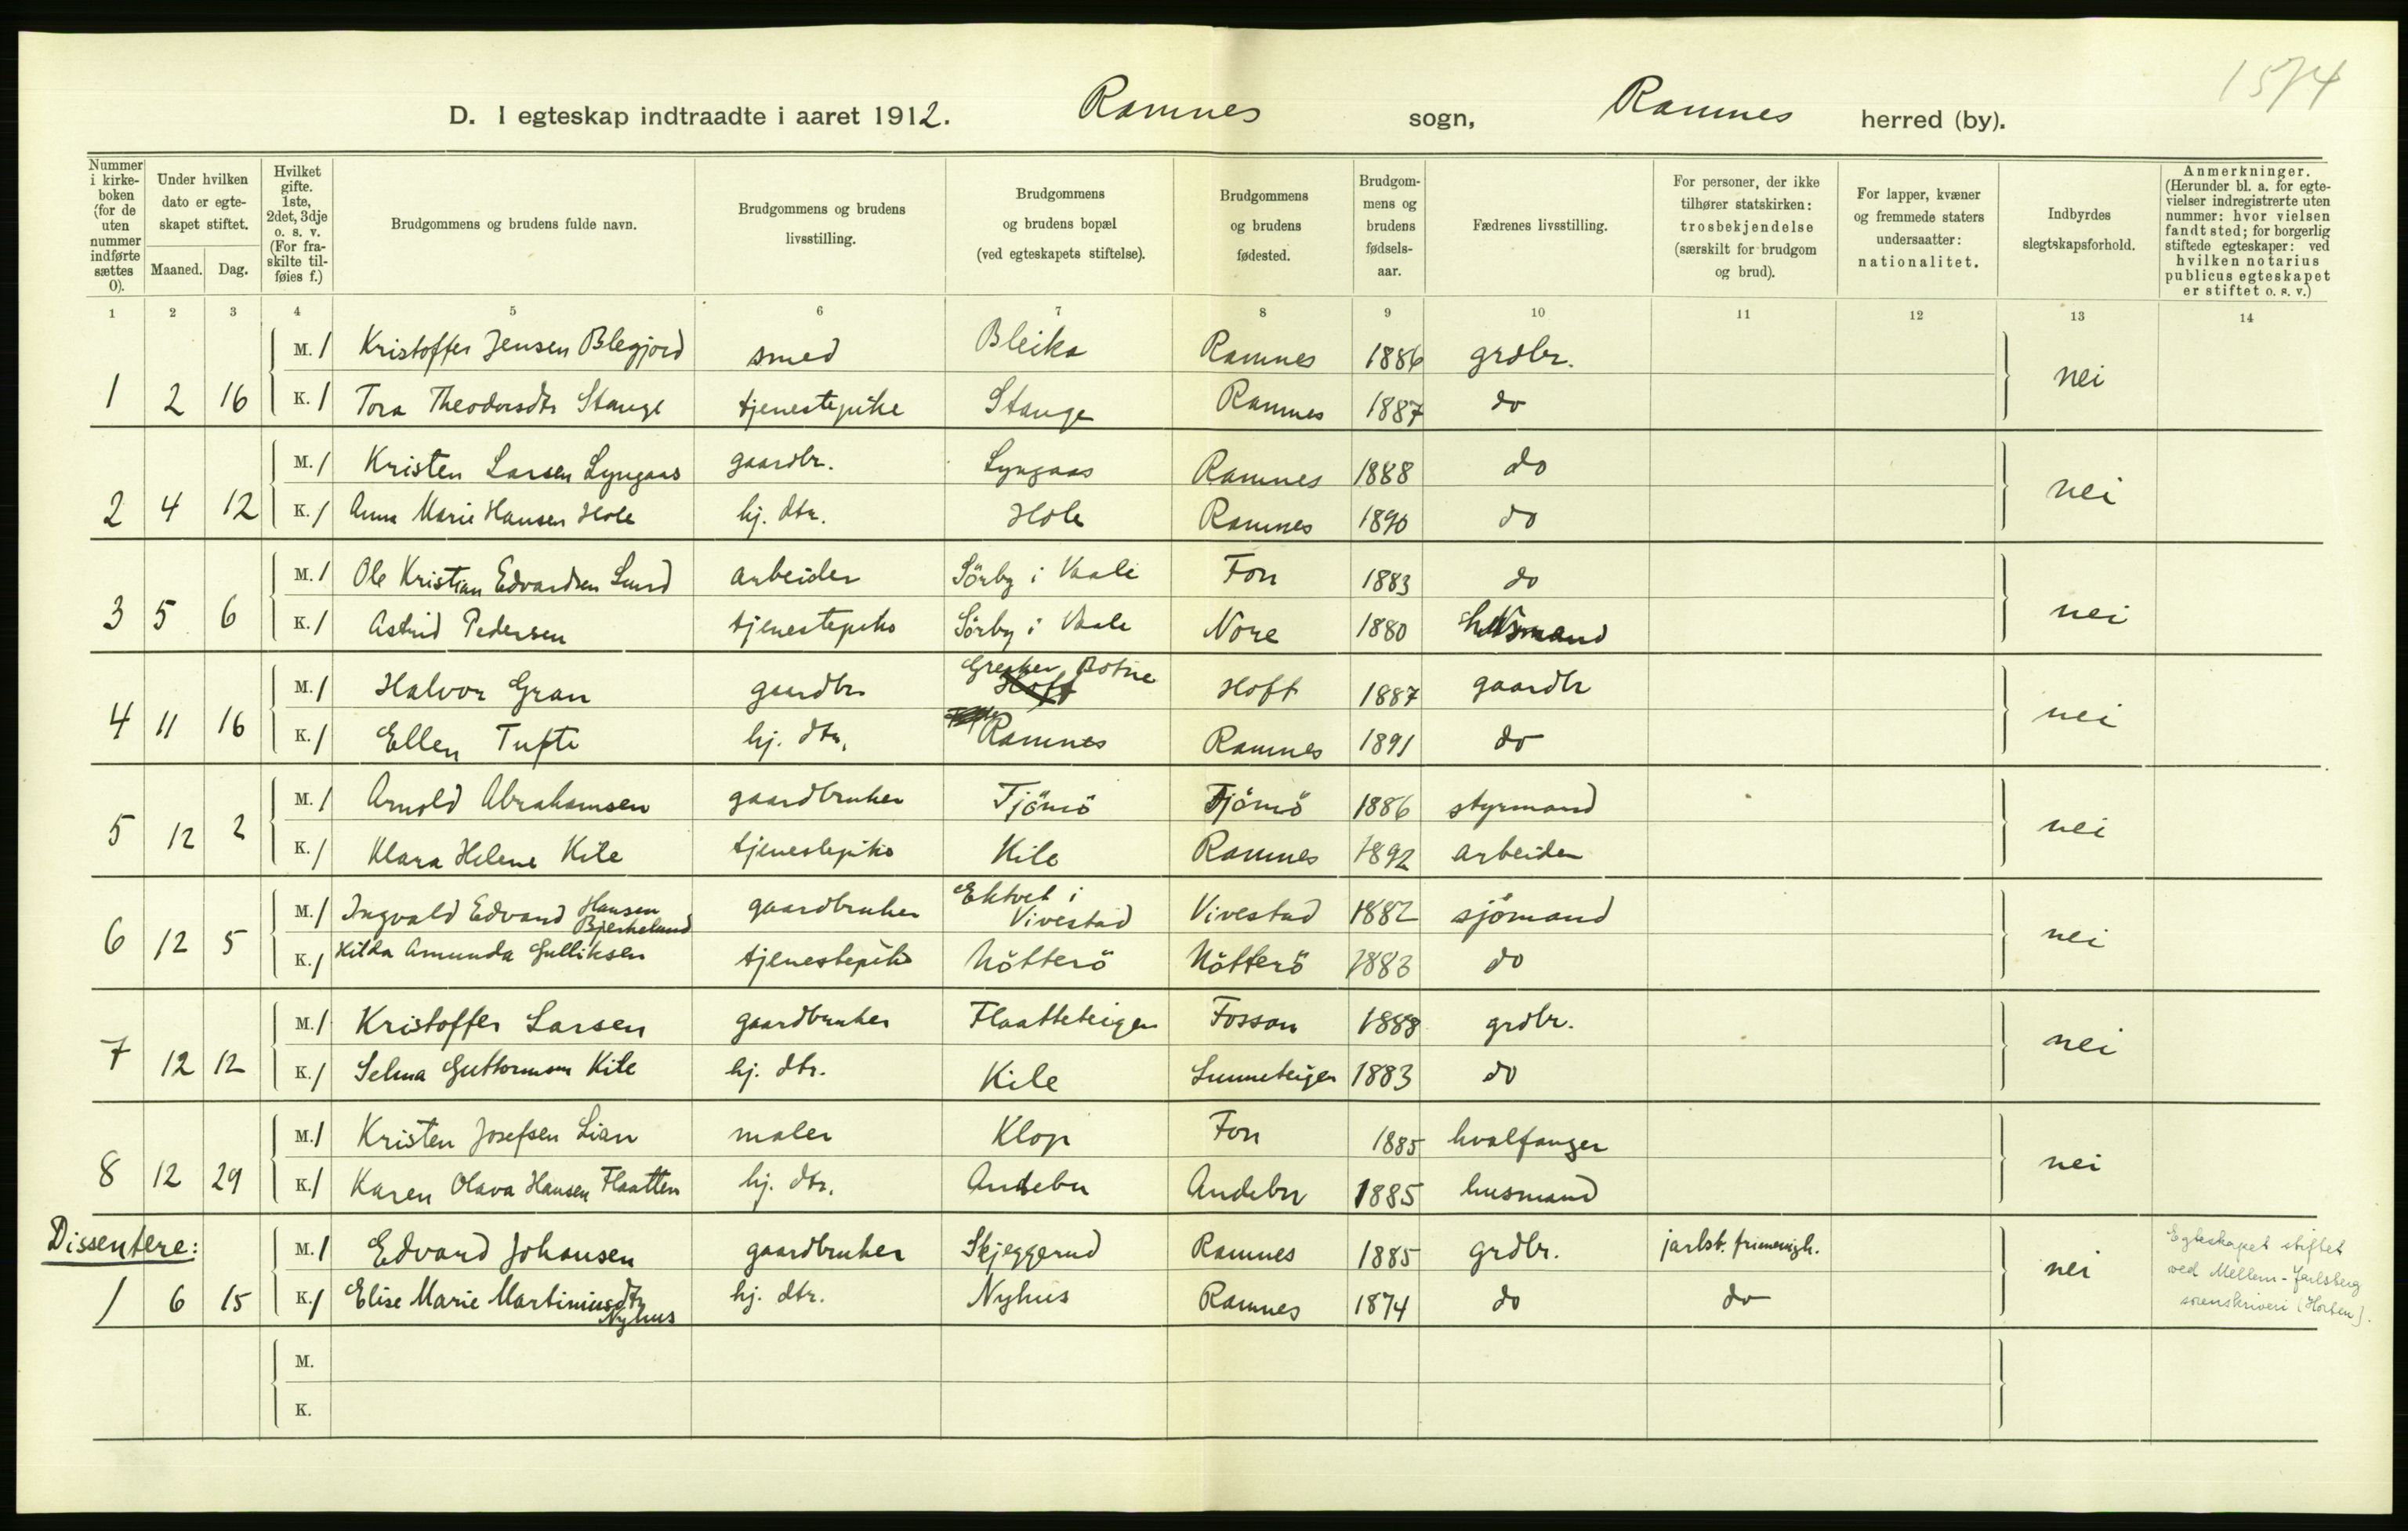 1574
D. I egteskap indtraadte i aaret 1912. Ramnes sogn, Ramnes herred (by).
Nummer i kirke-boken (for de uten nummer indførte sættes 0).
Under hvilken dato er egte-skapet stiftet.
Maaned. Dag.
Hvilket gifte. 1ste, 2det, 3dje o. s. v. (For fra-skilte til-føies f.)
Brudgommens og brudens fulde navn.
Brudgommens og brudens livsstilling.
Brudgommens og brudens bopæl (ved egteskapets stiftelse).
Brudgommens og brudens fødested.
Brudgom-mens og brudens fødsels-aar.
Fædrenes livsstilling.
For personer, der ikke tilhører statskirken: trosbekjendelse (særskilt for brudgom og brud).
For lapper, kvæner og fremmede staters undersaatter: nationalitet.
Indbyrdes slegtskapsforhold.
Anmerkninger. (Herunder bl. a. for egte-vielser indregistrerte uten nummer: hvor vielsen fandt sted; for borgerlig stiftede egteskaper: ved hvilken notarius publicus egteskapet er stiftet o. s. v.)
1 2 3 4 5 6 7 8 9 10 11 12 13 14
M. 1 Kristoffer Jensen Blegjord smed Bleika Ramnes 1886 grdbr.
1 2 16 K. 1 Tora Theodorsdtr Stange tjenestepike Stange Ramnes 1887 do nei
M. 1 Kristen Larsen Lyngaas gaardbr. Lyngaas Ramnes 1888 do
2 4 12 K. 1 Anna Marie Hansen Hole hj. dtr. Hole Ramnes 1890 do nei
M. 1 Ole Kristian Edvardsen Lund arbeider Sörby i Vaale Fon 1883 do
3 5 6 K. 1 Astrid Pedersen tjenestepike Sörby i Vaale Nore 1880 husmand nei
M. 1 Halvor Gran gaardbr Botne Hoff Hoff 1887 gaardbr
4 11 16 K. 1 Ellen Tufte hj. dtr. Ramnes Ramnes 1891 do nei
M. 1 Arnold Abrahamsen gaardbruker Tjömö Tjömö 1886 styrmand
5 12 2 K. 1 Klara Helene Kile tjenestepike Kile Ramnes 1892 arbeider nei
M. 1 Ingvald Edvard Hansen Bjerkelund gaardbruker Ektvet i Vivestad Vivestad 1882 sjömand
6 12 5 K. 1 Hilda Amunda Gulliksen tjenestepike Nötterö Nötterö 1883 do nei
M. 1 Kristoffer Larsen gaardbruker Flaatteteigen Fossan 1888 grdbr.
7 12 12 K. 1 Selma Guttormsen Kile hj. dtr. Kile Sunneteigen 1883 do nei
M. 1 Kristen Josefsen Lian maler Klop Fon 1885 hvalfanger
8 12 29 K. 1 Karen Olava Hansen Flaatten hj. dtr. Andebu Andebu 1885 husmand nei
Dissentere:
M. 1 Edvard Johansen gaardbruker Skjeggerud Ramnes 1885 grdbr. jarlsb. frimenigh.
1 6 15 K. 1 Elise Marie Martiniusdtr Nyhus hj. dtr. Nyhus Ramnes 1874 do do nei
Egteskapet stiftet
ved Mellem-Jarlsberg
sorenskriveri (Horten).
M.
K.